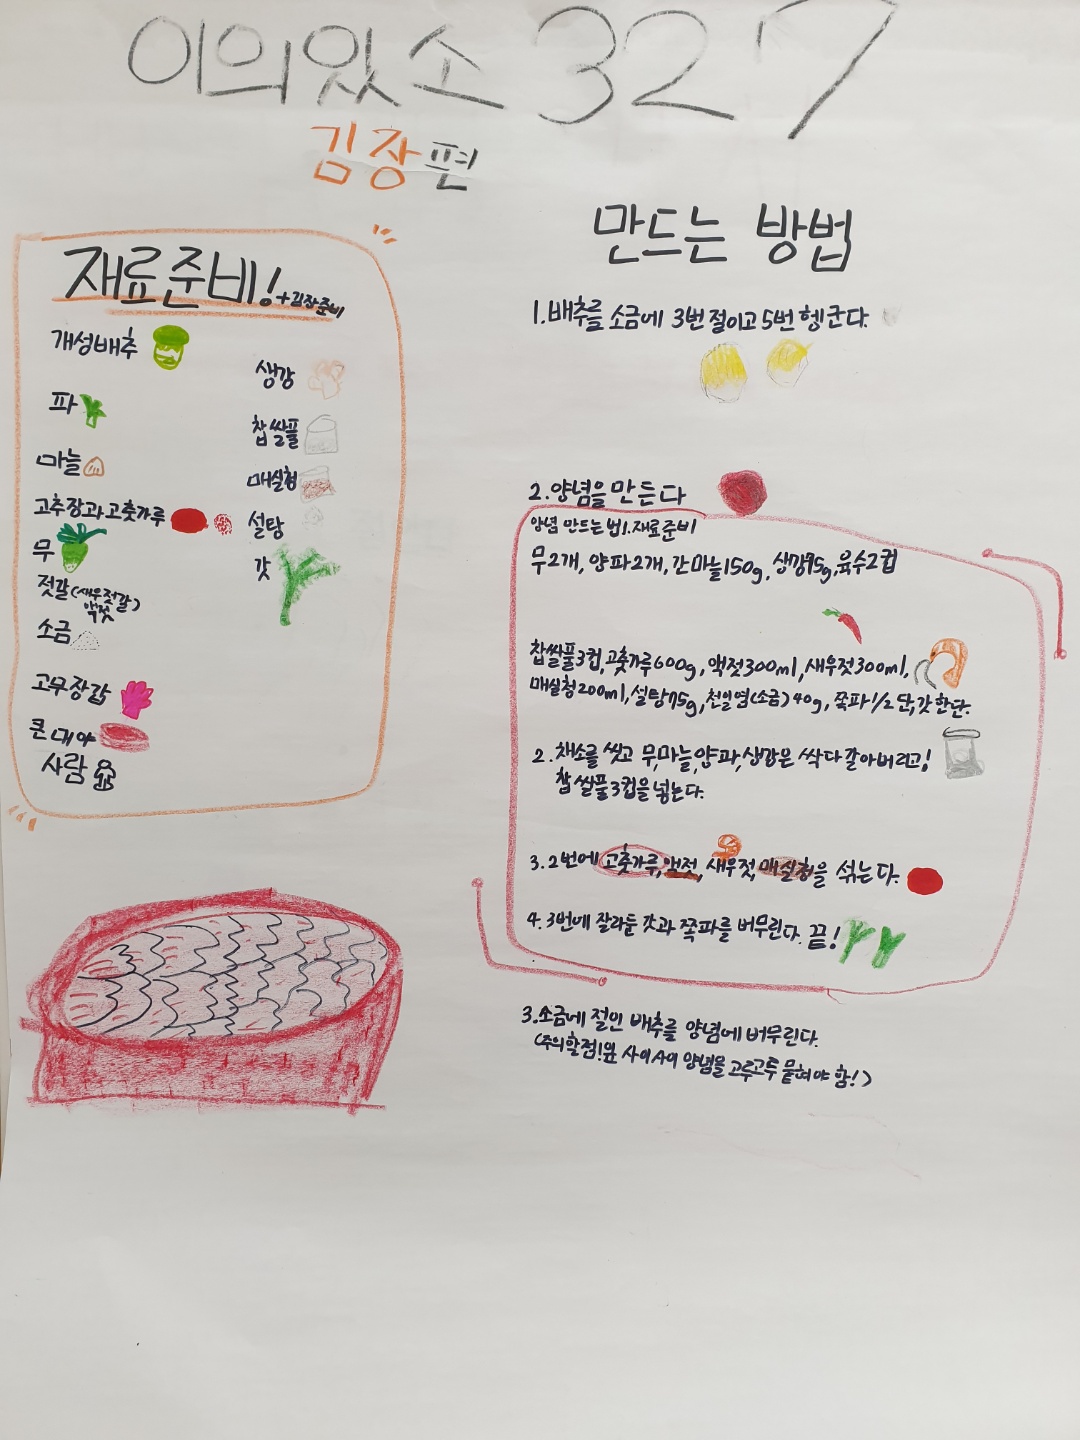 이의있소 327
김장편
재료준비! +김장준비
개성배추
파
마늘
고추장과 고춧가루
무
젓갈(새우젓갈)
액젓
소금
고무장갑
큰 대야
사람
생강
찹쌀풀
매실청
설탕
갓
만드는 방법
1.배추를 소금에 3번 절이고 5번 헹군다.
2.양념을 만든다
양념 만드는 법1.재료준비
무2개, 양파2개, 간마늘150g, 생강75g, 육수2컵
찹쌀풀3컵,고춧가루600g, 액젓300ml,새우젓300ml,
매실청200ml,설탕75g,천일염(소금)40g, 쪽파1/2단,갓 한단.
2.채소를 씻고 무,마늘,양파,생강은 싹다 갈아버리고!
찹쌀풀3컵을 넣는다.
3.2번에 고춧가루,액젓,새우젓,매실청을 섞는다.
4.3번에 잘라둔 갓과 쪽파를 버무린다. 끝!
3.소금에 절인 배추를 양념에 버무린다.
(주의할점!잎 사이사이 양념을 고루고루 뭍혀야 함!)